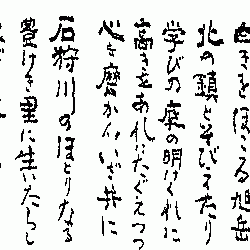 白きをほこる旭岳
北の鎮とそびえたり
学びの庭の明けくれに
高きをあれにたぐえつつ
心を磨かんいざ共に
石狩川のほとりなる
豊けき里に生いたちし